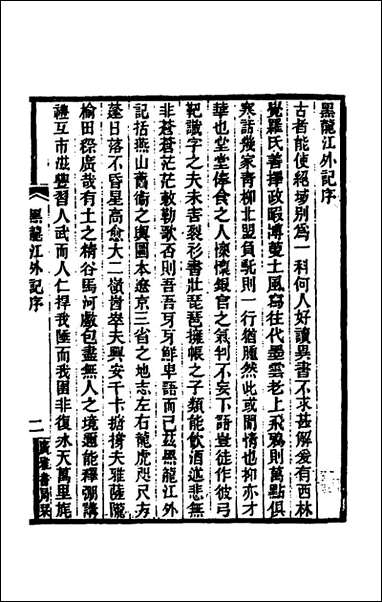 黑龍江外記序
古者能使絕域別為一科何人好讀異書不求甚解爰有西林
覺羅氏善擇政暇溥蒐土風寫往代墨雲老上飛鴉則萬點俱
寒話幾家青柳北盟負駝則一行猶臃然此或閒情也抑亦才
華也堂堂俸食之人懍懷銀官之氣判不妄下語豈徒作彼弓
靶識字之夫未害裂衫書壯琵琶擁帳之子類能飲酒述悲無
非蒼蒼茫茫敕勒歌否則吾吾牙牙鮮卑語而已茲黑龍江外
記括燕山舊衞之輿圖本遼京三省之地志左右龍虎咫尺方
蓬日落不昏星高愈大二嶺酋翠夫興安千卡掎掎夫雅薩隴
榆田穄廣哉有土之精谷馬河獻包盡無人之境邇能釋弸講
禮互市滋豐習人武而人仁捍我陲而我圉非復冰天萬里旄
黑龍江外記序
一
廣雅書局栞